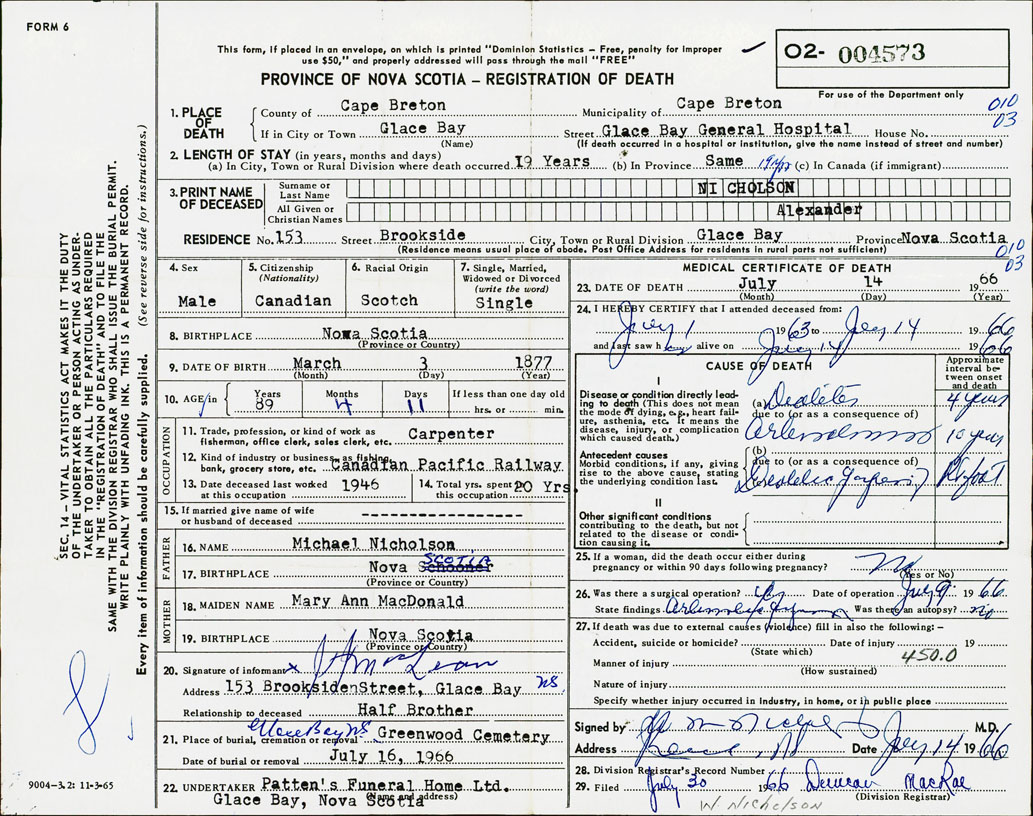 FORM 6
This form, if placed in an envelope, on which is printed "Dominion Statistics – Free, penalty for improper
use $50," and properly addressed will pass through the mail "FREE"
PROVINCE OF NOVA SCOTIA – REGISTRATION OF DEATH
O2- 004573
For use of the Department only
010
03
1. PLACE OF DEATH
County of Cape Breton Municipality of Cape Breton
If in City or Town Glace Bay Street Glace Bay General Hospital House No.
(Name) (If death occurred in a hospital or institution, give the name instead of street and number)
2. LENGTH OF STAY (in years, months and days)
(a) In City, Town or Rural Division where death occurred 19 Years (b) In Province Same (c) In Canada (if immigrant)
3. PRINT NAME OF DECEASED
Surname or Last Name NICHOLSON
All Given or Christian Names Alexander
RESIDENCE No. 153 Street Brookside City, Town or Rural Division Glace Bay Province Nova Scotia
(Residence means usual place of abode. Post Office Address for residents in rural parts not sufficient)
010
03
4. Sex
Male
5. Citizenship
(Nationality)
Canadian
6. Racial Origin
Scotch
7. Single, Married,
Widowed or Divorced
(write the word)
Single
8. BIRTHPLACE Nova Scotia
(Province or Country)
9. DATE OF BIRTH March 3 1877
(Month) (Day) (Year)
10. AGE in Years 89 Months 4 Days 11 If less than one day old
hrs. or min.
OCCUPATION
11. Trade, profession, or kind of work as
fisherman, office clerk, sales clerk, etc. Carpenter
12. Kind of industry or business, as fishing,
bank, grocery store, etc. Canadian Pacific Railway
13. Date deceased last worked
at this occupation 1946
14. Total yrs. spent in
this occupation 20 Yrs
15. If married give name of wife
or husband of deceased ----------------
FATHER
16. NAME Michael Nicholson
17. BIRTHPLACE Nova Schooner SCOTIA
(Province or Country)
MOTHER
18. MAIDEN NAME Mary Ann MacDonald
19. BIRTHPLACE Nova Scotia
(Province or Country)
20. Signature of informant x
Address 153 BrooksidenStreet, Glace Bay NS
Relationship to deceased Half Brother
Glace Bay NS
21. Place of burial, cremation or removal Greenwood Cemetery
Date of burial or removal July 16, 1966
22. UNDERTAKER Patten's Funeral Home Ltd.
(Name and address)
Glace Bay, Nova Scotia
MEDICAL CERTIFICATE OF DEATH
23. DATE OF DEATH July 14 1966
(Month) (Day) (Year)
24. I HEREBY CERTIFY that I attended deceased from:
July 1 1963 to July 14 1966
and last saw h alive on July 14 1966
CAUSE OF DEATH
Approximate interval between onset and death
I
Disease or condition directly leading to death (This does not mean the mode of dying, e.g., heart failure, asthenia, etc. It means the disease, injury, or complication which caused death.)
(a) Diabetes 4 years
due to (or as a consequence of)
10 years
Antecedent causes
Morbid conditions, if any, giving rise to the above cause, stating the underlying condition last.
(b)
due to (or as a consequence of)
II
Other significant conditions
contributing to the death, but not related to the disease or condition causing it.
25. If a woman, did the death occur either during
pregnancy or within 90 days following pregnancy?
(Yes or No)
26. Was there a surgical operation? Date of operation July 9 1966
State findings Was there an autopsy? no
27. If death was due to external causes (violence) fill in also the following: –
Accident, suicide or homicide? Date of injury 19
(State which)
450.0
Manner of injury
(How sustained)
Nature of injury
Specify whether injury occurred in industry, in home, or in public place
Signed by M.D.
Address Date July 14 1966
28. Division Registrar's Record Number
29. Filed July 30 1966 Duncan MacRae
(Division Registrar)
W Nicholson
SEC. 14 – VITAL STATISTICS ACT MAKES IT THE DUTY
OF THE UNDERTAKER OR PERSON ACTING AS UNDER-
TAKER TO OBTAIN ALL THE PARTICULARS REQUIRED
IN THE "REGISTRATION OF DEATH" AND TO FILE THE
SAME WITH THE DIVISION REGISTRAR WHO SHALL ISSUE THE BURIAL PERMIT.
WRITE PLAINLY WITH UNFADING INK. THIS IS A PERMANENT RECORD.
Every item of information should be carefully supplied. (See reverse side for instructions.)
9004-3.21 11-3-65